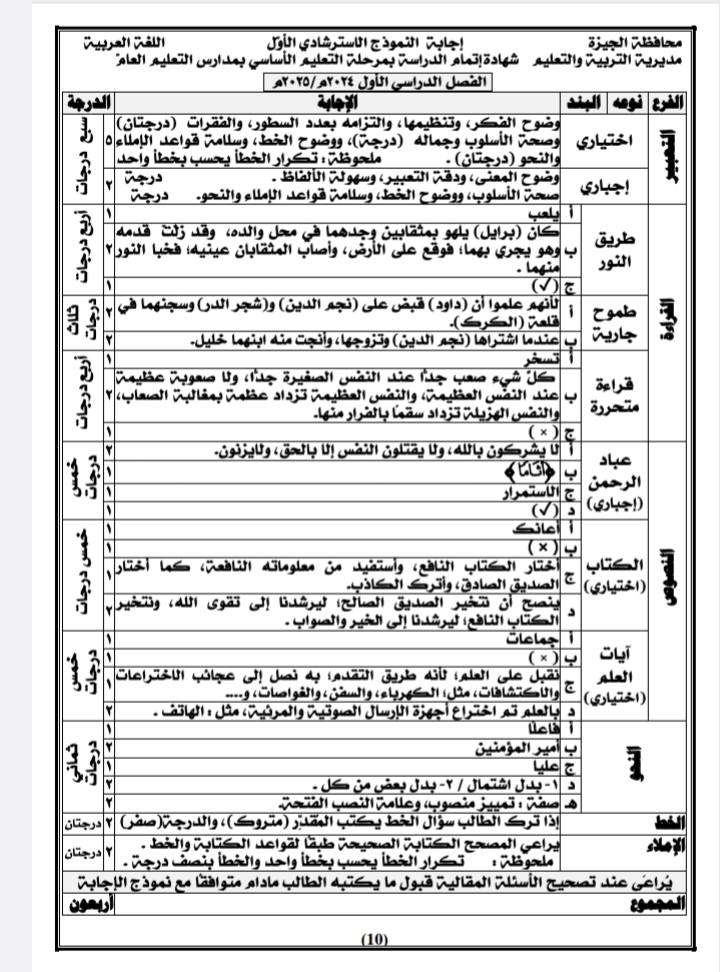 محافظة الجيزة إجابة النموذج الاسترشادي الأول اللغة العربية
مديرية التربية والتعليم شهادة إتمام الدراسة بمرحلة التعليم الأساسي بمدارس التعليم العام
الفصل الدراسي الأول ٢٠٢٤م/٢٠٢٥م
الفرع نوعه البند الإجابة الدرجة
التعبير
اختياري
وضوح الفكر، وتنظيمها، والتزامه بعدد السطور، والفقرات (درجتان)
وصحة الأسلوب وجماله (درجة)، ووضوح الخط، وسلامة قواعد الإملاء
والنحو (درجتان) . ملحوظة: تكرار الخطأ يحسب بخطأ واحد
٥
سبع درجات
إجباري
وضوح المعنى، ودقة التعبير، وسهولة الألفاظ . درجة
صحة الأسلوب، ووضوح الخط، وسلامة قواعد الإملاء والنحو. درجة
٢
القراءة
طريق النور
أ يلعب ١
ب كان (برايل) يلهو بمثقابين وجدهما في محل والده، وقد زلت قدمه
وهو يجري بهما؛ فوقع على الأرض، وأصاب المثقابان عينيه؛ فخبا النور ٢
منهما .
ج (√) ١
أربع درجات
طموح جارية
أ لأنهم علموا أن (داود) قبض على (نجم الدين) و(شجر الدر) وسجنهما في
قلعة (الكرك). ٢
ب عندما اشتراها (نجم الدين) وتزوجها، وأنجت منه ابنهما خليل. ٢
ثلاث درجات
قراءة متحررة
أ تسخر ١
ب كل شيء صعب جدًا عند النفس الصغيرة جدًا، ولا صعوبة عظيمة
عند النفس العظيمة، والنفس العظيمة تزداد عظمة بمغالبة الصعاب، ٢
والنفس الهزيلة تزداد سقمًا بالفرار منها.
ج (×) ١
أربع درجات
النصوص
عباد الرحمن (إجباري)
أ لا يشركون بالله، ولا يقتلون النفس إلا بالحق، ولايزنون. ٢
ب ﴿أثاما﴾ ١
ج الاستمرار ١
د (√) ١
خمس درجات
الكتاب (اختياري)
أ أعانك ١
ب (×) ١
ج أختار الكتاب النافع، وأستفيد من معلوماته النافعة، كما أختار
الصديق الصادق، وأترك الكاذب. ١
د ينصح أن نتخير الصديق الصالح؛ ليرشدنا إلى تقوى الله، ونتخير
الكتاب النافع؛ ليرشدنا إلى الخير والصواب . ٢
خمس درجات
آيات العلم (اختياري)
أ جماعات ١
ب (×) ١
ج نقبل على العلم؛ لأنه طريق التقدم؛ به نصل إلى عجائب الاختراعات
والاكتشافات، مثل؛ الكهرباء، والسفن، والغواصات، و.... ١
د بالعلم تم اختراع أجهزة الإرسال الصوتية والمرئية، مثل : الهاتف . ٢
خمس درجات
النحو
أ فاعلا ١
ب أمير المؤمنين ٢
ج عليا ١
د ١- بدل اشتمال / ٢- بدل بعض من كل . ٢
هـ صفة : تمييز منصوب، وعلامة النصب الفتحة. ٢
ثماني درجات
الخط إذا ترك الطالب سؤال الخط يكتب المقدّر (متروك)، والدرجة(صفر) ٢ درجتان
الإملاء يراعي المصحح الكتابة الصحيحة طبقًا لقواعد الكتابة والخط .
ملحوظة : تكرار الخطأ يحسب بخطأ واحد والخطأ بنصف درجة . ٢ درجتان
يُراعَى عند تصحيح الأسئلة المقالية قبول ما يكتبه الطالب مادام متوافقًا مع نموذج الإجابة
المجموع أربعون
(10)